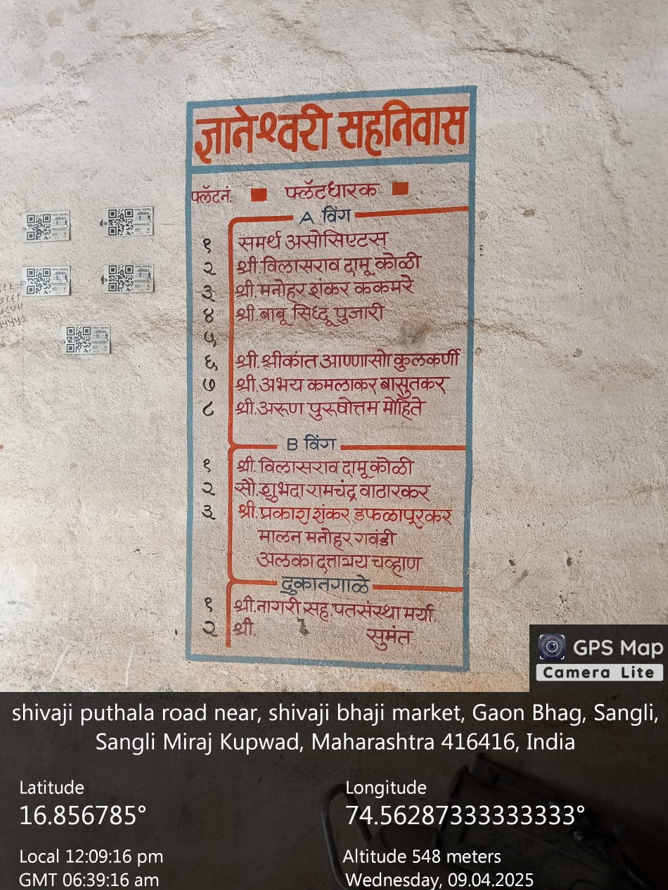 ज्ञानेश्वरी सहनिवास
फ्लॅटनं. फ्लॅटधारक
A विंग
१ समर्थ असोसिएटस
२ श्री.विलासराव दामू कोळी
३ श्री.मनोहर शंकर ककमरी
४ श्री.बाबू सिध्दू पुजारी
५
६ श्री.श्रीकांत आण्णासो कुलकर्णी
७ श्री.अभय कमलाकर बासुतकर
८ श्री.अरूण पुरूषोत्तम मोहिते
B विंग
१ श्री.विलासराव दामू कोळी
२ सौ.शुभदा रामचंद्र वाठारकर
३ श्री.प्रकाश शंकर डफळापूरकर
मालन मनोहर गवंडी
अलका दत्तात्रय चव्हाण
दुकानगाळे
१ श्री.नागरी सह.पतसंस्था मर्या.
२ श्री. सुमंत
GPS Map
Camera Lite
shivaji puthala road near, shivaji bhaji market, Gaon Bhag, Sangli,
Sangli Miraj Kupwad, Maharashtra 416416, India
Latitude Longitude
16.856785° 74.56287333333333°
Local 12:09:16 pm Altitude 548 meters
GMT 06:39:16 am Wednesday, 09.04.2025